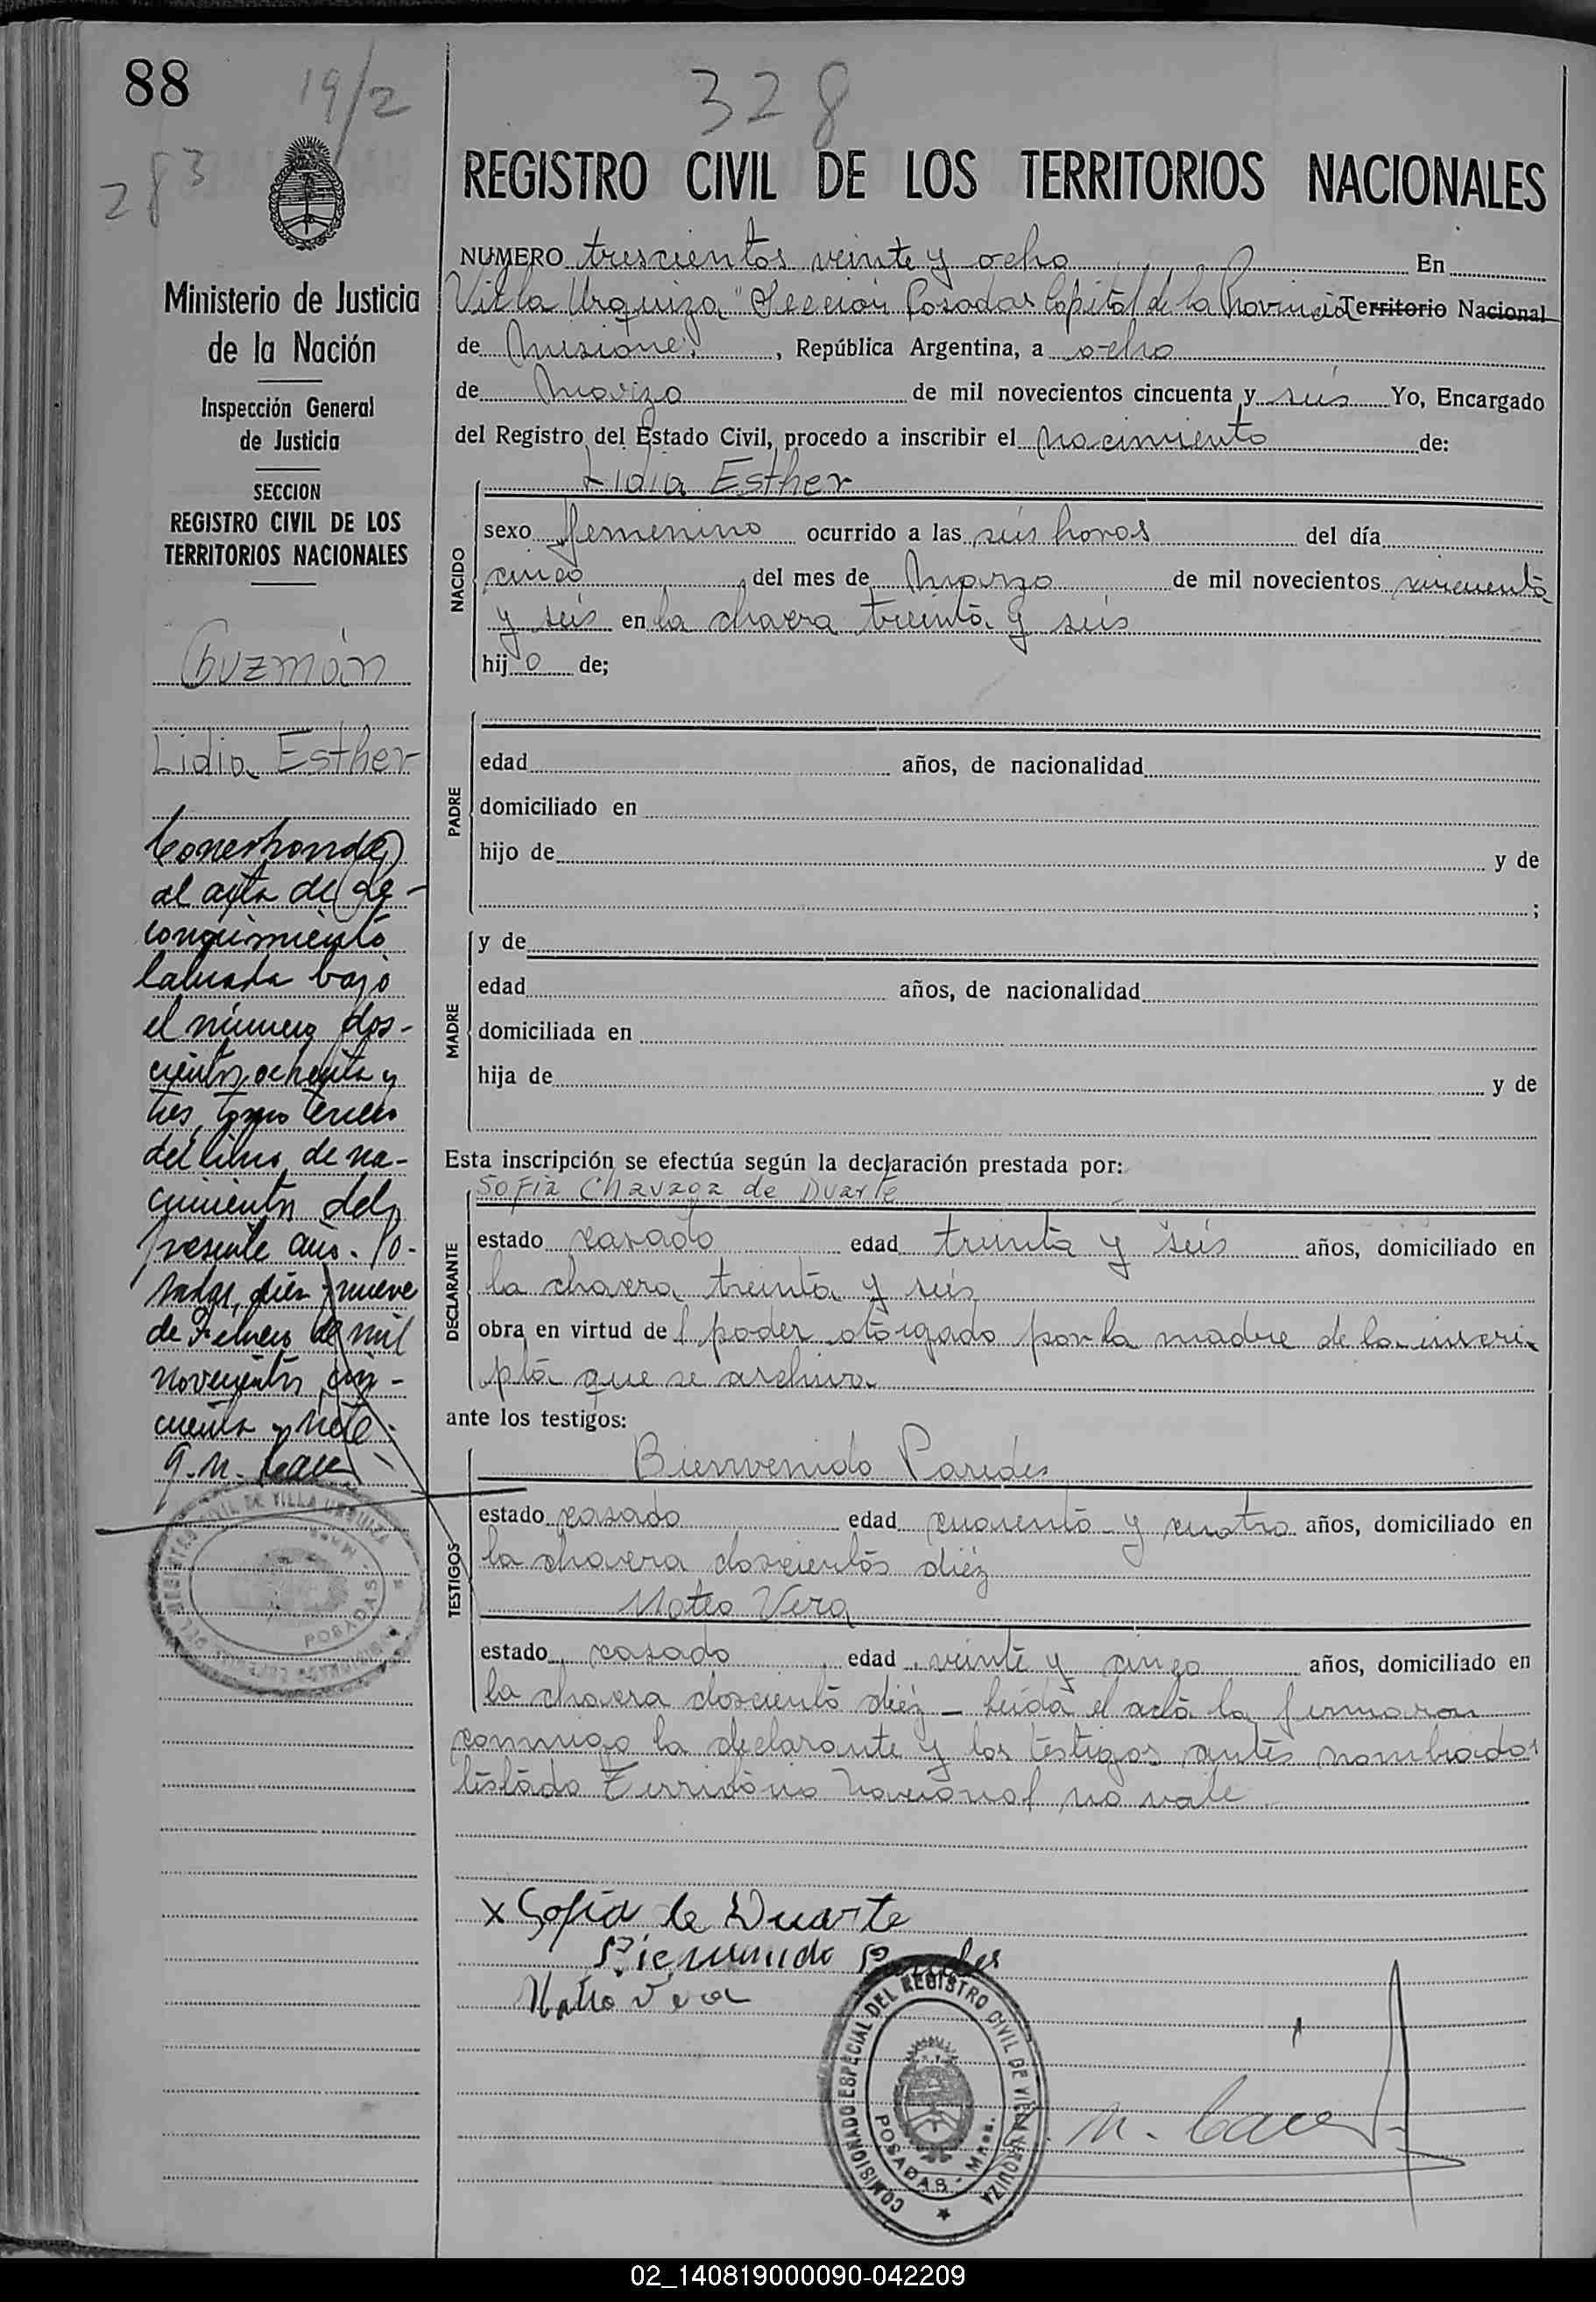 88
19/2
328
283
REGISTRO CIVIL DE LOS TERRITORIOS NACIONALES
NUMERO trescientos veinte y ocho En
Villa Urquiza" Sección Posadas Capital de la Provincia Territorio Nacional
de Misiones, República Argentina, a ocho
de Marzo de mil novecientos cincuenta y seis Yo, Encargado
del Registro del Estado Civil, procedo a inscribir el nacimiento de:
Lidia Esther
NACIDO
sexo femenino ocurrido a las seis horas del día
cinco del mes de Marzo de mil novecientos cincuenta
y seis en la chacra treinta y seis
hijo de;
PADRE
edad años, de nacionalidad
domiciliado en
hijo de y de
;
MADRE
y de
edad años, de nacionalidad
domiciliada en
hija de y de
Esta inscripción se efectúa según la declaración prestada por:
Sofia Chavaga de Duarte
DECLARANTE
estado casado edad treinta y seis años, domiciliado en
la chacra treinta y seis
obra en virtud del poder otorgado por la madre de la inscri-
pta que se archiva
ante los testigos:
TESTIGOS
Bienvenido Paredes
estado casado edad cuarenta y cuatro años, domiciliado en
la chacra doscientos diéz
Mateo Vera
estado casado edad veinte y cinco años, domiciliado en
la chacra doscientó diéz – leída el acta la firmaron
conmigo la declarante y los testigos antes nombrados
testado Territorio Nacional no vale
x Sofia de Duarte
Bienvenido Paredes
Mateo Vera
COMISIONADO ESPECIAL DEL REGISTRO CIVIL DE VILLA URQUIZA
POSADAS - Mnes.
Ministerio de Justicia
de la Nación
Inspección General
de Justicia
SECCION
REGISTRO CIVIL DE LOS
TERRITORIOS NACIONALES
Guzmán
Lidia Esther
Corresponde
al acta de re-
conocimiento
labrada bajo
el número dos-
cientos ochenta y
tres, tomo tercero
del libro de na-
cimientos del
presente año. Po-
sadas, diez y nueve
de Febrero de mil
novecientos cin-
cuenta y siete.
POSADAS
02_140819000090-042209